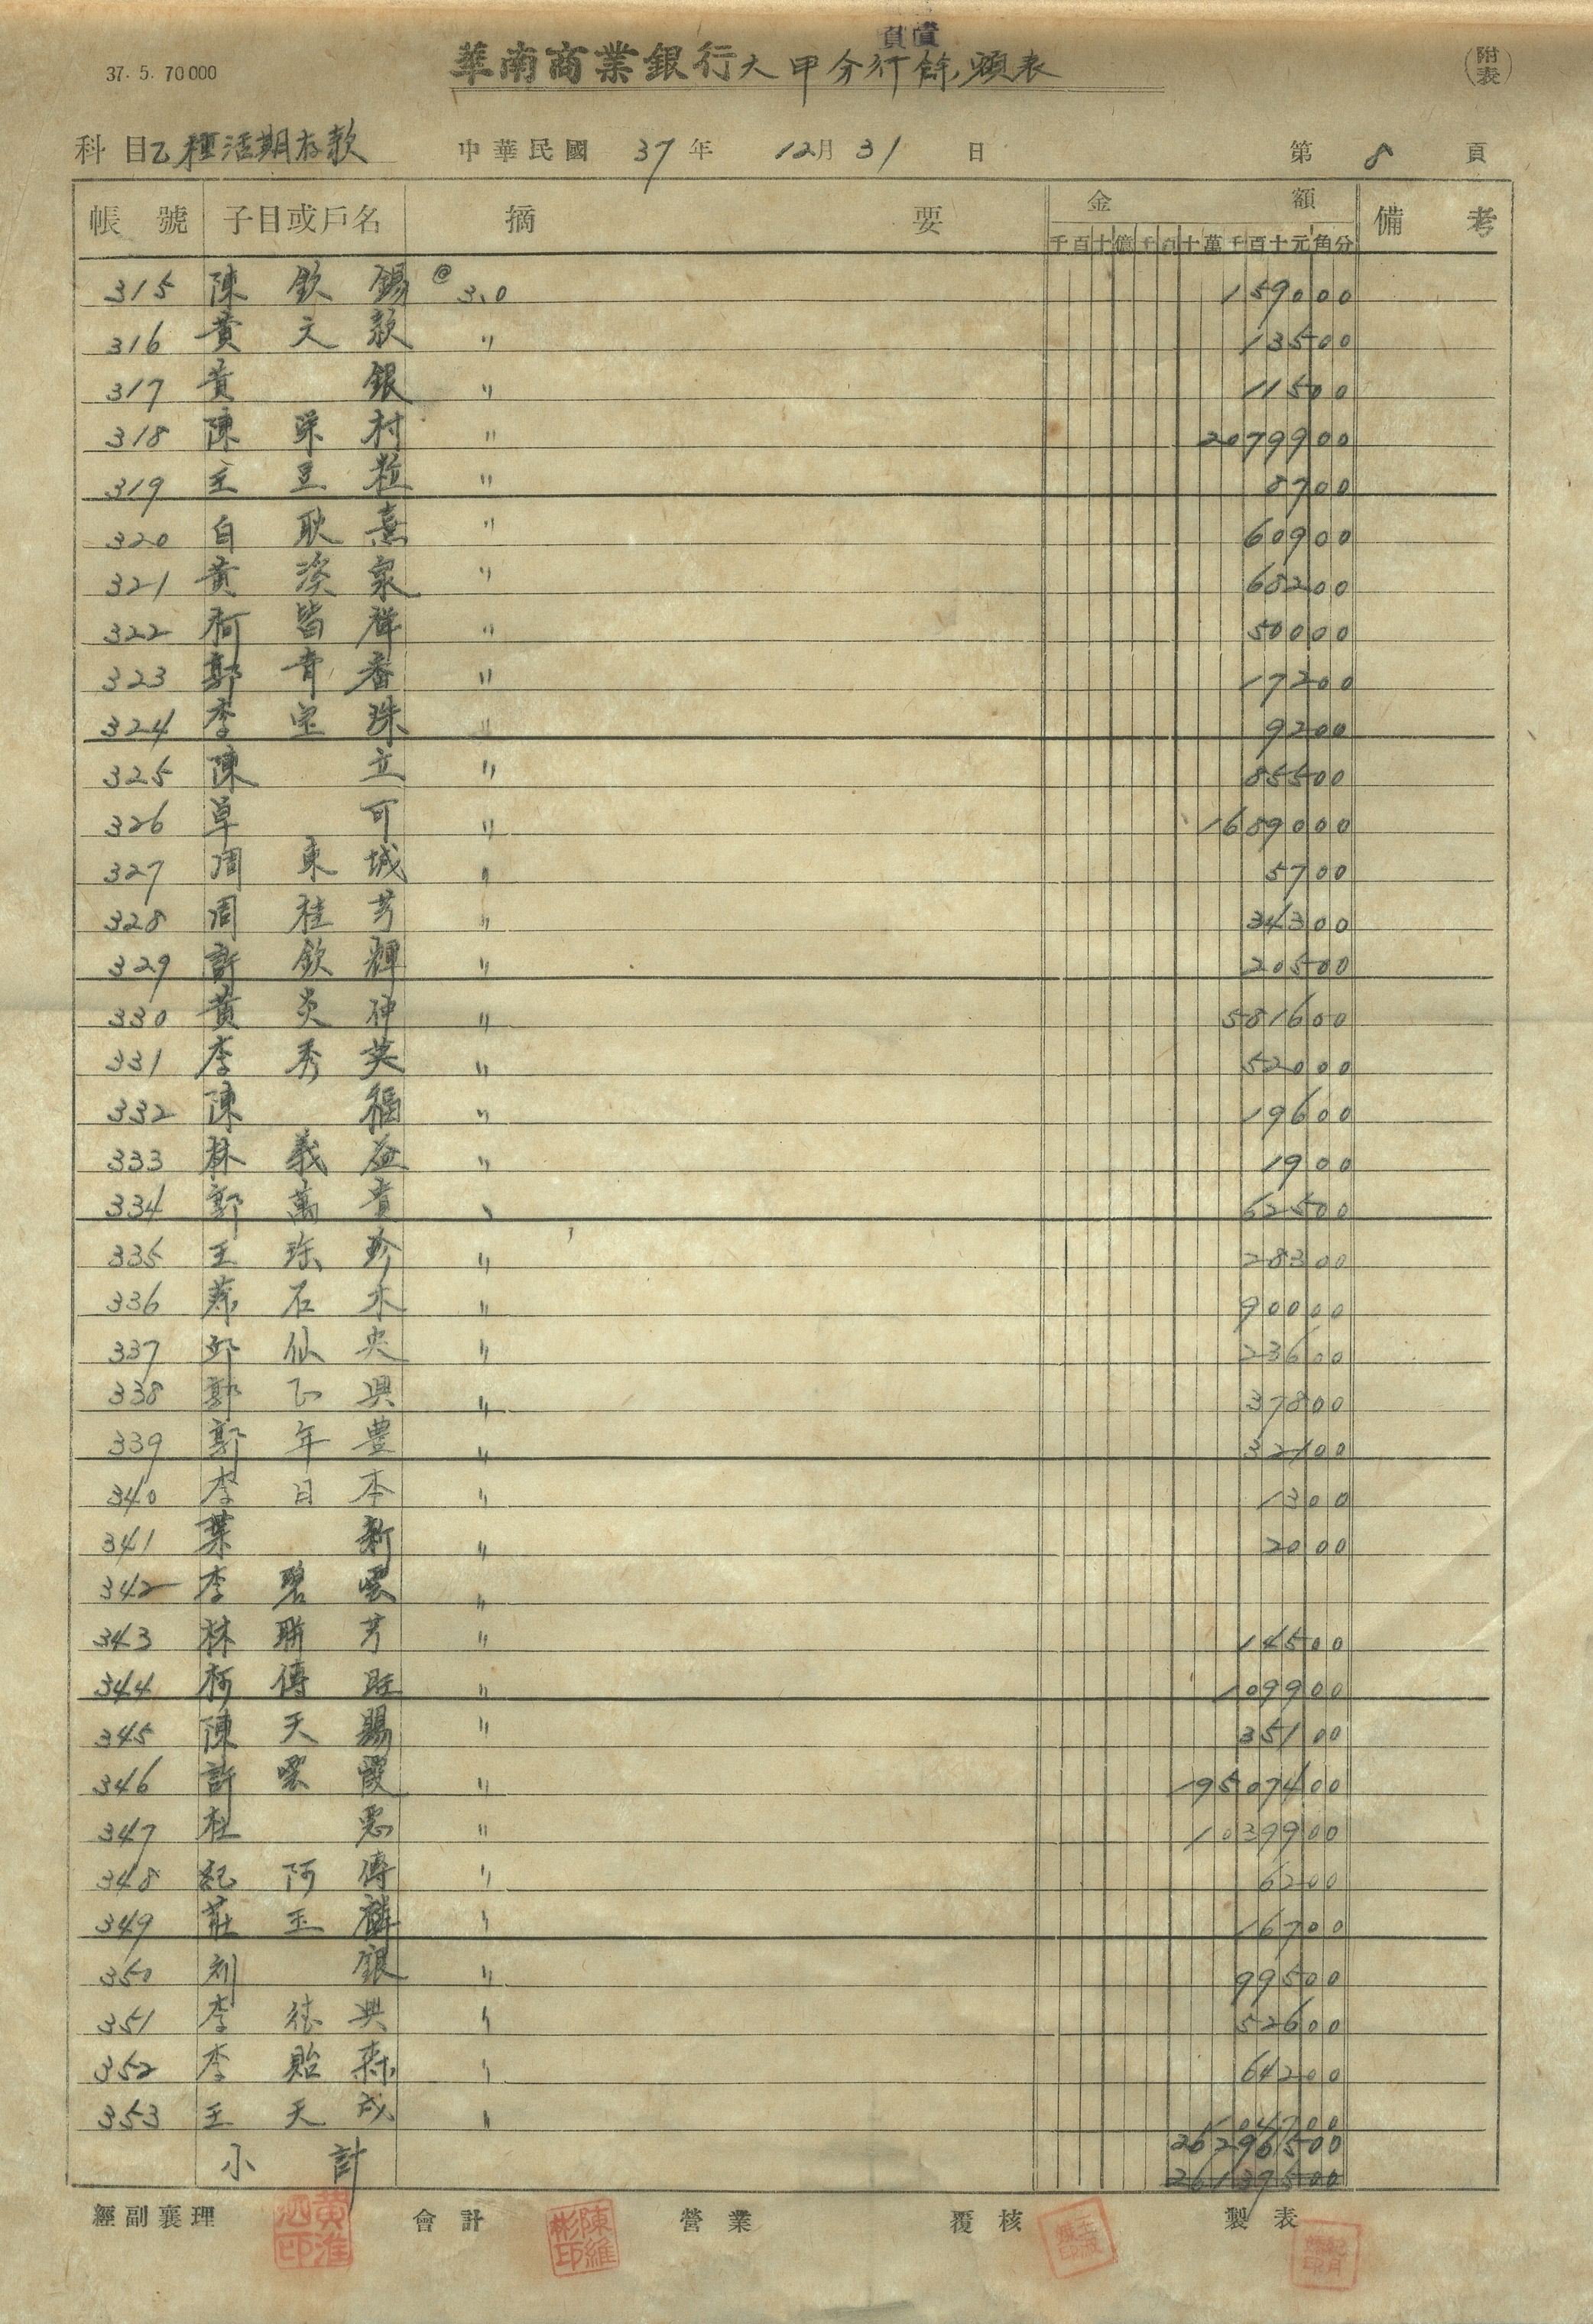 負債
37. 5. 70000 華南商業銀行大甲分行餘額表 (附表)
科目乙種活期存款 中華民國 37年 12月 31日 第 8 頁
帳號 子目或戶名 摘要 金額 備考
千百十億千百十萬千百十元角分
315 陳欽錫 @3.0 159000
316 黃文款 〃 13500
317 黃銀 〃 11500
318 陳栄村 〃 2079900
319 王豆粒 〃 8700
320 白耿熹 〃 60900
321 黃添泉 〃 68200
322 柯皆輝 〃 50000
323 郭青番 〃 17200
324 李宝珠 〃 9200
325 陳立 〃 85500
326 卓可 〃 1689000
327 周東城 〃 5700
328 周桂芳 〃 34300
329 許欽輝 〃 20500
330 黃炎神 〃 581600
331 李秀英 〃 52000
332 陳福 〃 19600
333 林義益 〃 1900
334 郭萬貴 〃 62500
335 王珍珍 〃 28300
336 蔡石木 〃 90000
337 邱仙央 〃 23600
338 郭正興 〃 37800
339 郭年豊 〃 32100
340 李日本 〃 1300
341 葉新 〃 2000
342 李碧雲 〃
343 林聯芳 〃 14500
344 柯傳旺 〃 109900
345 陳天賜 〃 35100
346 許雲霞 〃 19507400
347 杜惡 〃 1039900
348 紀阿傳 〃 6200
349 莊玉麟 〃 16700
350 刘銀 〃 99500
351 李德興 〃 52600
352 李貽森 〃 64200
353 王天成 〃 104700
小計 26296500
26139500
經副襄理 會計 營業 覆核 製表
黃淮泗印 陳維彬印